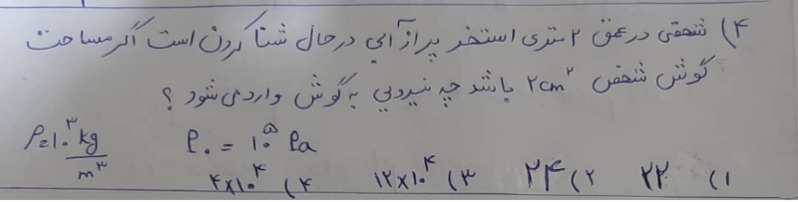 ۴) شخصی در عمق ۲ متری استخر پر از آبی در حال شنا کردن است اگر مساحت
گوش شخص ۲cm² باشد چه نیرویی به گوش وارد می شود ؟
ρ=۱۰³ kg/m³ P₀ = ۱۰⁵ Pa
۱) ۲۲ ۲) ۲۴ ۳) ۱۲×۱۰⁴ ۴) ۴×۱۰⁴